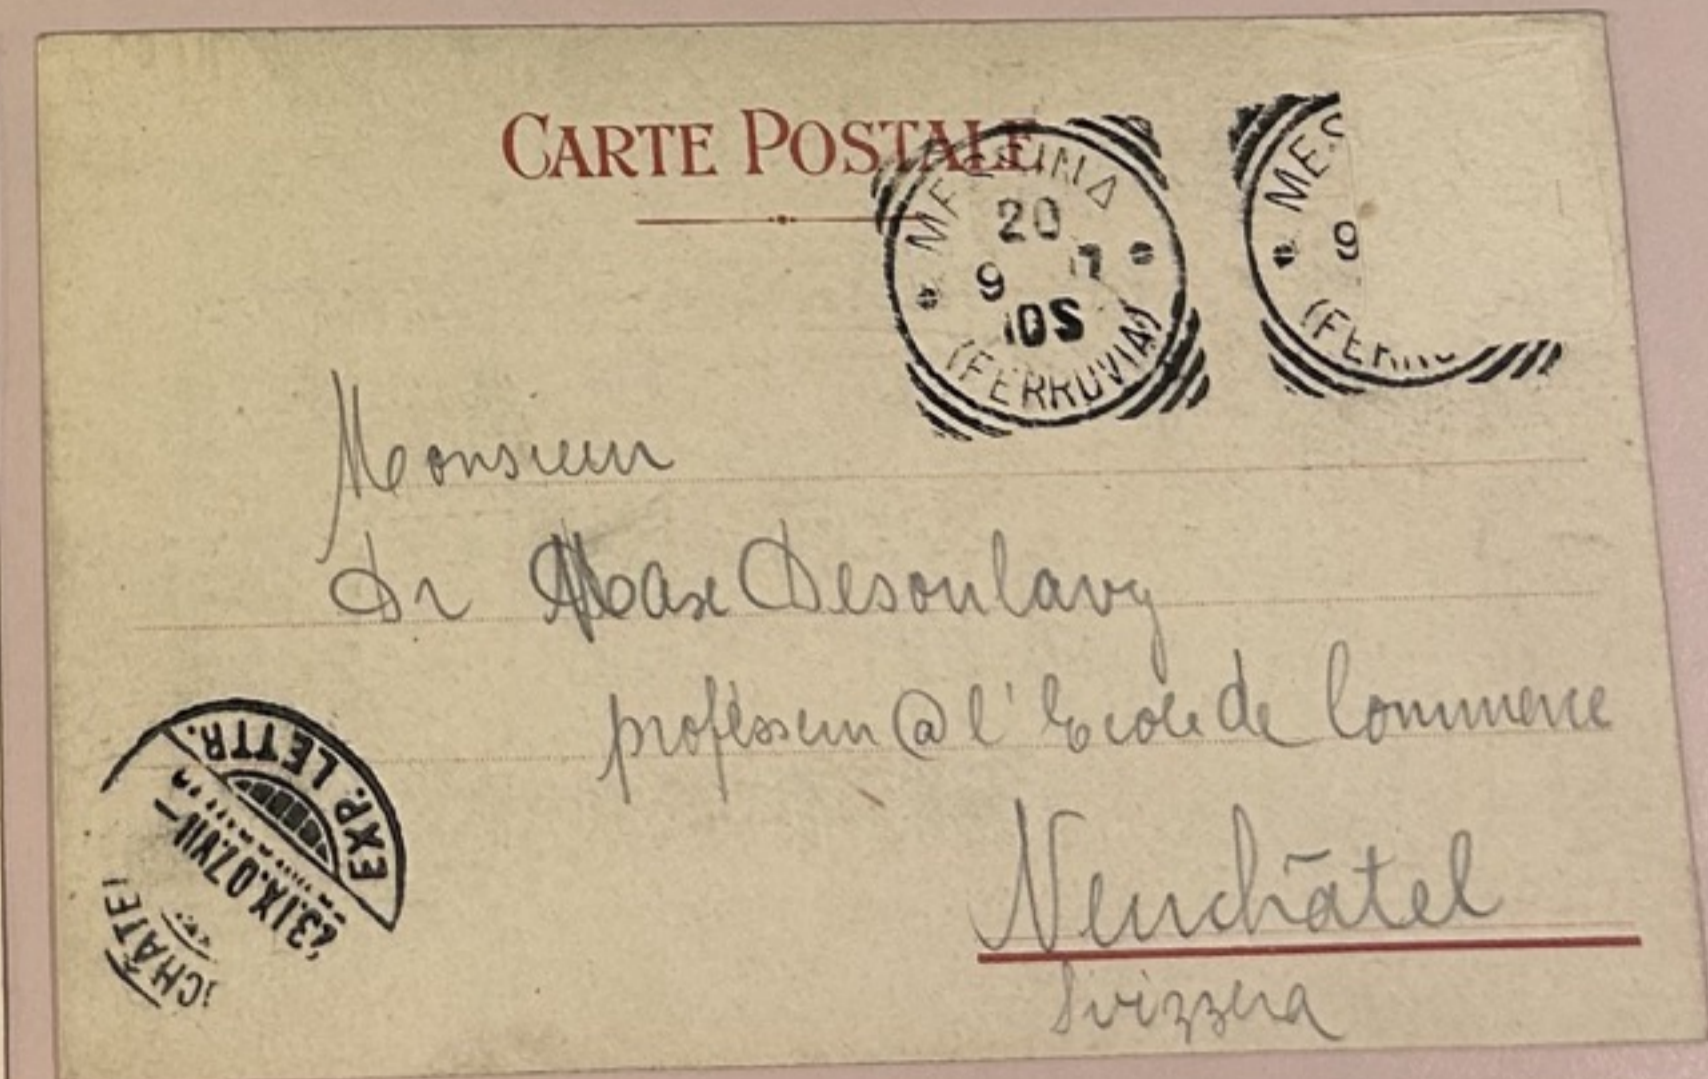 CARTE POSTALE
MESSINA
20
9
10S
(FERROVIA)
MES
9
(FERRO
Monsieur
Dr Max Desoulavy
professeur @ l'Ecole de Commerce
Neuchâtel
Svizzera
EXP. LETTR.
23.IX.07.VII–
CHÂTEL